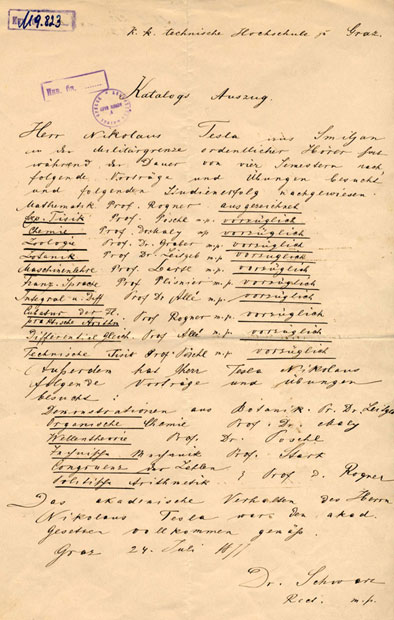 119.823
k. k. technische Hochschule in Graz.
Katalogs Auszug.
Herr Nikolaus Tesla aus Smiljan
in der Militürgrenze ordentlicher Hörer hat
während der Dauer von vier Semestern nach
folgende Vorträge und Übungen besucht
und folgenden Studienerfolg nachgewiesen
Mathematik Prof. Rogner ausgezeichnet
Exp. Fisik Prof. Pöschl m.p. vorzüglich
Chemie Prof. m.p. vorzüglich
Zoologie Prof. Dr. Graber m.p. vorzüglich
Botanik Prof. Dr. Leitgeb m.p. vorzüglich
Maschinenlehre Prof. Bartl m.p. vorzüglich
Franz. Sprache Prof. Plisnier m.p. vorzüglich
Integral u. Diff Prof Dr. Allé m.p. vorzüglich
der
praktische Arithm Prof Rogner m.p. vorzüglich
Differential Gleich. Prof. Allé m.p. vorzüglich
Technische Fisik Prof Pöschl m.p. vorzüglich
Außerdem hat Herr Tesla Nikolaus
folgende Vorträge und Übungen
besucht:
Demonstrationen aus Botanik Pr. Dr. Leitgeb
Organische Chemie Prof. Dr. Maly
Wellentheorie Prof. Dr. Pöschl
Technische Mechanik Prof. Stark
Congruenz der Zallen
Politische Arithmetik } Prof d. Rogner
Das akademische Verhalten des Herrn
Nikolaus Tesla war den akad.
Gesetzen vollkommen gemäß.
Graz 24. Juli
Dr. Schwarz
Rect. m.p.